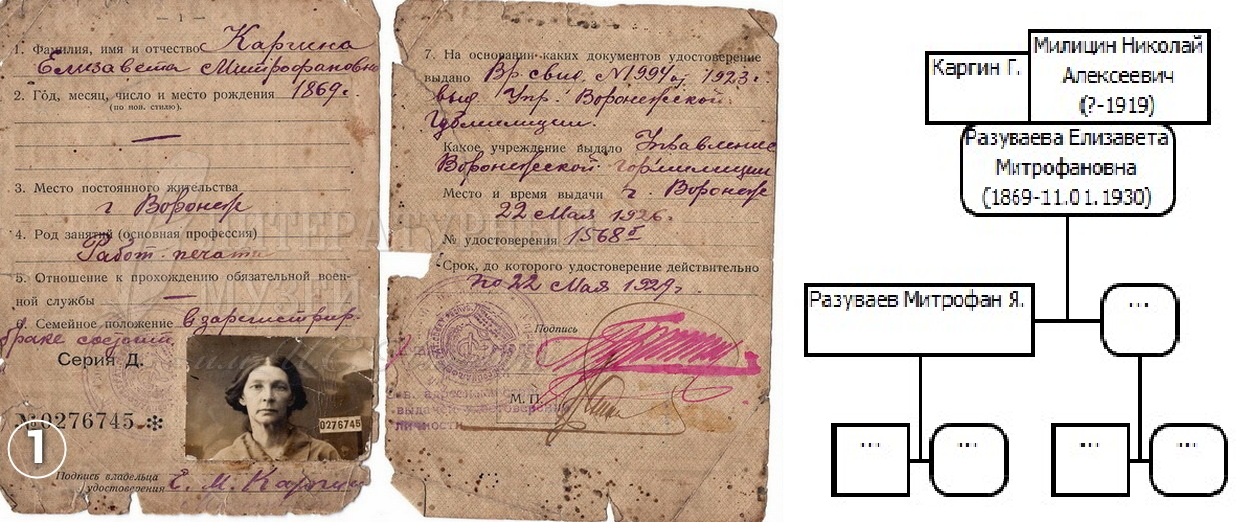 — 1 —
1. Фамилия, имя и отчество Каргина
Елизавета Митрофановна
2. Год, месяц, число и место рождения 1869 г.
(по нов. стилю).
3. Место постоянного жительства
г Воронеж
4. Род занятий (основная профессия)
Работ. печати
5. Отношение к прохождению обязательной воен-
ной службы —
6. Семейное положение в зарегистрир.
браке состоит
Серия Д.
№ 0276745
0276745
1
Подпись владельца
удостоверения Е. М. Каргина
7. На основании каких документов удостоверение
выдано Вр. свид. N1994 от 1923 г.
выд. Упр. Воронежской
Губмилиции.
Какое учреждение выдало Управление
Воронежской гормилиции
Место и время выдачи г. Воронеж
22 Мая 1926.
№ удостоверения 1568
Срок, до которого удостоверение действительно
по 22 Мая 1929 г.
Подпись
М. П.
выдаче удостоверения
личности
ЛИТЕРАТУРНЫЙ
МУЗЕЙ
Каргин Г.
Милицин Николай
Алексеевич
(?-1919)
Разуваева Елизавета
Митрофановна
(1869-11.01.1930)
Разуваев Митрофан Я.
...
...
...
...
...